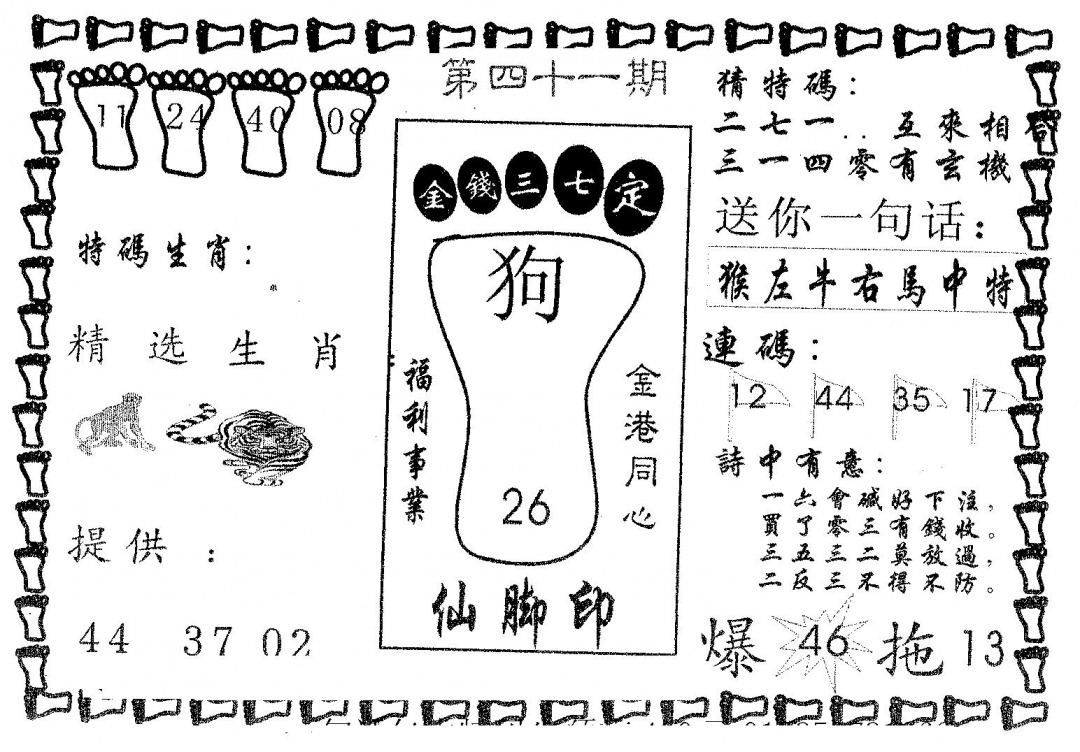 第四十一期
11 24 40 08
特碼生肖：
精选生肖：
提供：
44 37 02
金錢三七定
狗
福利事業
金港同心
26
仙脚印
猜特碼：
二七一..互來相合
三一四零有玄機
送你一句话：
猴左牛右馬中特
連碼：
12 44 35 17
詩中有意：
一六會碱好下注，
買了零三有錢收。
三五三二莫放過，
二反三不得不防。
爆 46 拖 13